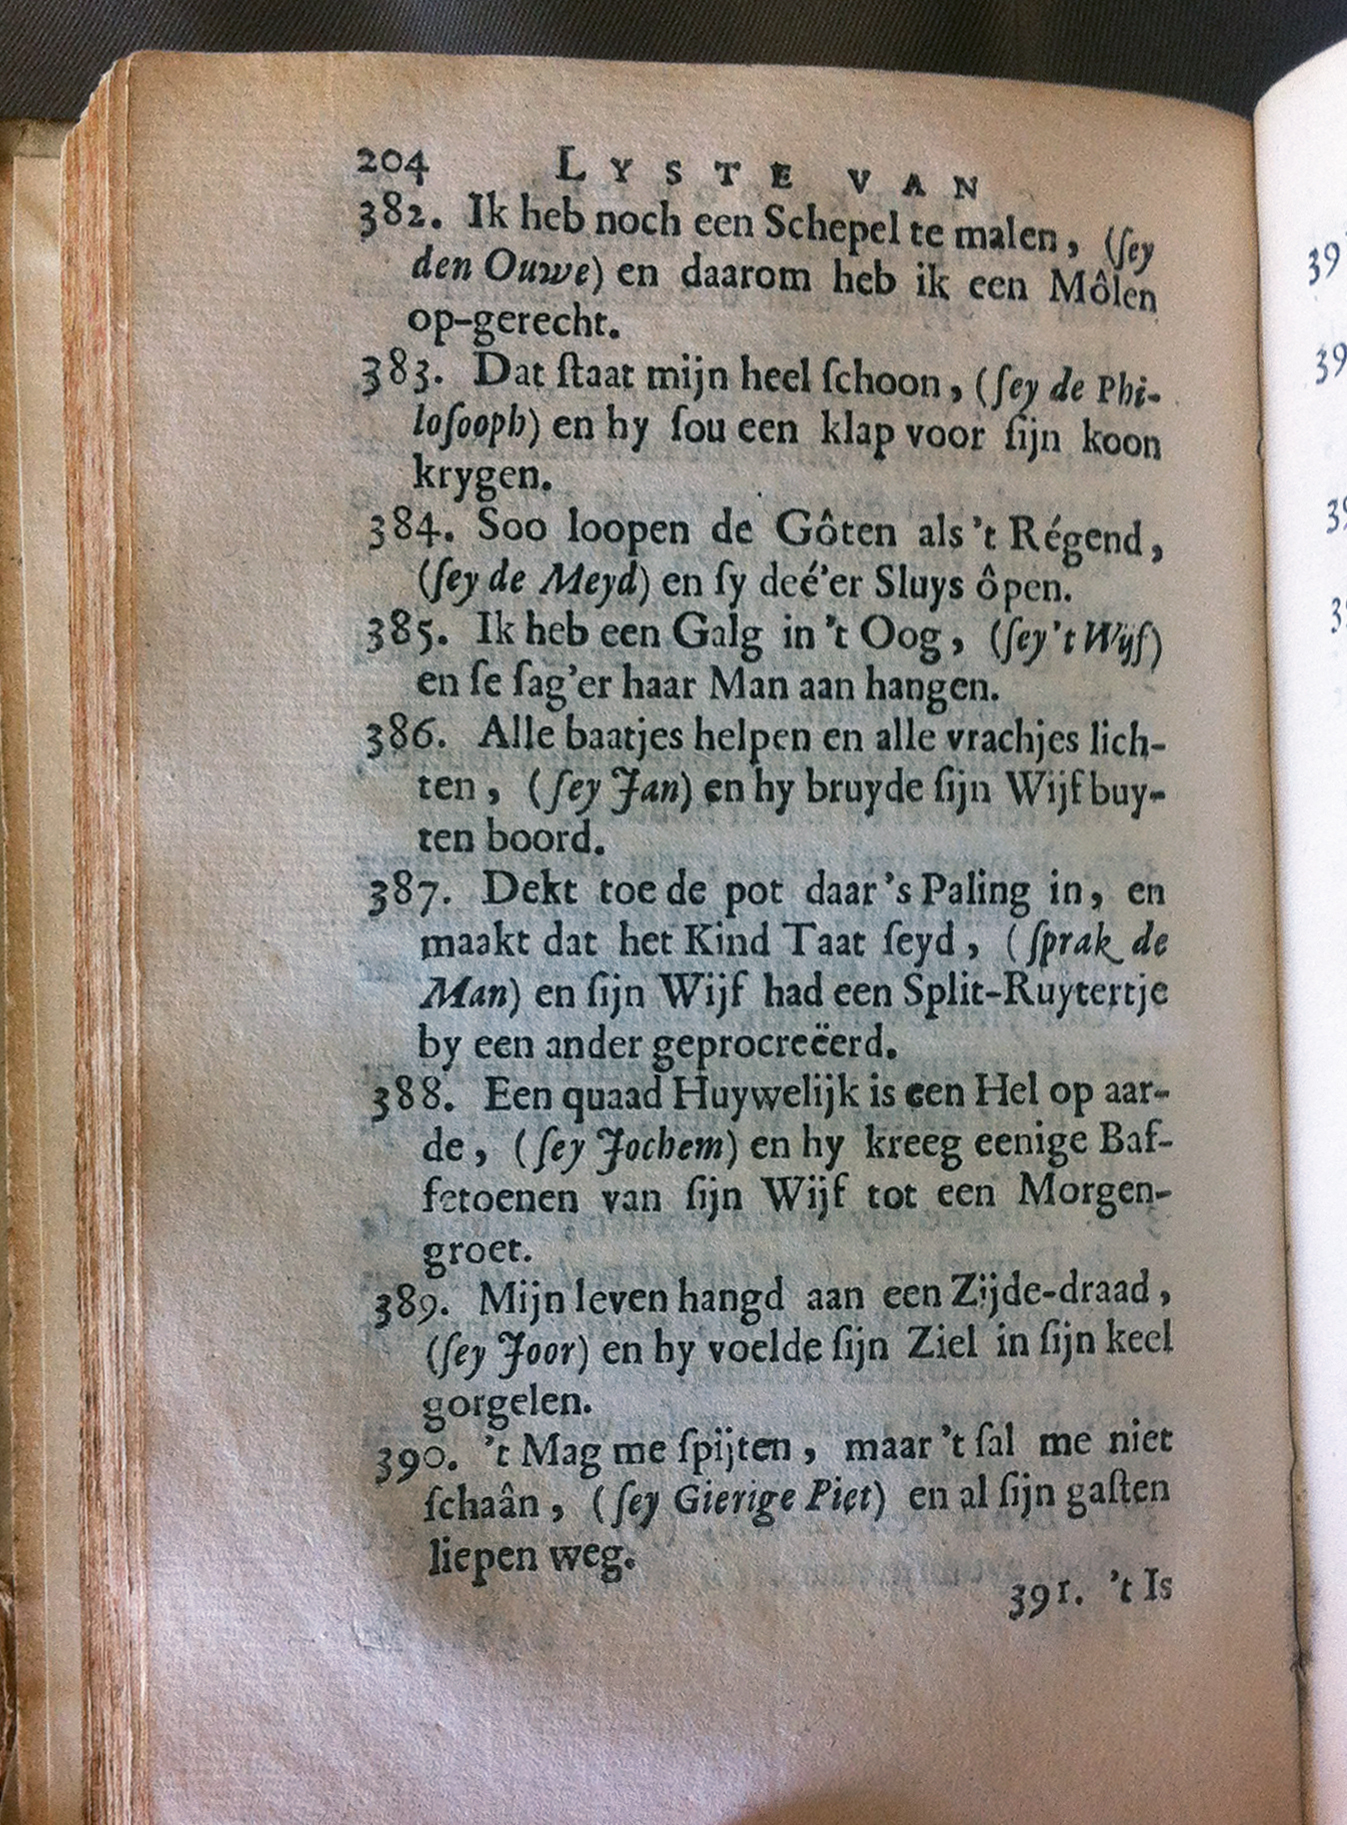 204 LYSTE VAN
382. Ik heb noch een Schepel te malen, (ſey
den Ouwe) en daarom heb ik een Môlen
op-gerecht.
383. Dat ſtaat mijn heel ſchoon, (ſey de Phi-
loſooph) en hy ſou een klap voor ſijn koon
krygen.
384. Soo loopen de Gôten als 't Régend,
(ſey de Meyd) en ſy deé'er Sluys ôpen.
385. Ik heb een Galg in 't Oog, (ſey 't Wijf)
en ſe ſag'er haar Man aan hangen.
386. Alle baatjes helpen en alle vrachjes lich-
ten, (ſey Jan) en hy bruyde ſijn Wijf buy-
ten boord.
387. Dekt toe de pot daar's Paling in, en
maakt dat het Kind Taat ſeyd, (ſprak de
Man) en ſijn Wijf had een Split-Ruytertje
by een ander geprocreëerd.
388. Een quaad Huywelijk is een Hel op aar-
de, (ſey Jochem) en hy kreeg eenige Baf-
fetoenen van ſijn Wijf tot een Morgen-
groet.
389. Mijn leven hangd aan een Zijde-draad,
(ſey Joor) en hy voelde ſijn Ziel in ſijn keel
gorgelen.
390. 't Mag me ſpijten, maar 't ſal me niet
ſchaân, (ſey Gierige Piet) en al ſijn gaſten
liepen weg.
391. 't Is
39
39